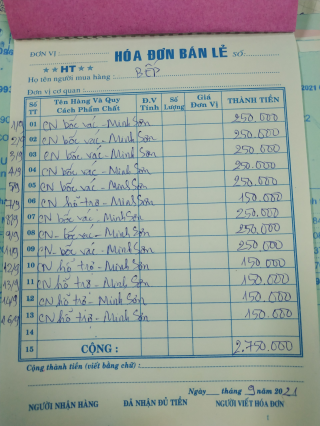 ĐƠN VỊ :
HÓA ĐƠN BÁN LẺ SỐ
**HT**
Họ tên người mua hàng : BẾP
Đơn vị cơ quan :
Số TT Tên Hàng Và Quy Cách Phẩm Chất Đ.V Tính Số Lượng Giá Đơn Vị THÀNH TIỀN
1/9 01 CN bốc vác - Minh Sơn 250.000
2/9 02 CN bốc vác - Minh Sơn 250.000
3/9 03 CN bốc vác - Minh Sơn 250.000
4/9 04 CN bốc vác - Minh Sơn 250.000
5/9 05 CN bốc vác - Minh Sơn 250.000
06 CN hỗ trợ - Minh Sơn 150.000
07 CN bốc vác - Minh Sơn 250.000
9/9 08 CN - bốc vác - Minh Sơn 250.000
11/9 09 CN - bốc vác - Minh Sơn 250.000
12/9 10 CN hỗ trợ - Minh Sơn 150.000
13/9 11 CN hỗ trợ - Minh Sơn 150.000
14/9 12 CN hỗ trợ - Minh Sơn 150.000
16/9 13 CN hỗ trợ - Minh Sơn 150.000
14
15 CỘNG : 2.750.000
Cộng thành tiền (viết bằng chữ) :
Ngày tháng 9 năm 2021
NGƯỜI NHẬN HÀNG ĐÃ NHẬN ĐỦ TIỀN NGƯỜI VIẾT HÓA ĐƠN